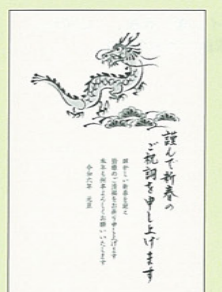 謹んで新春の
ご祝詞を申し上げます
輝かしい新春を迎え
皆様のご活躍をお祈り申し上げます
本年も何卒よろしくお願いいたします
令和六年　元旦